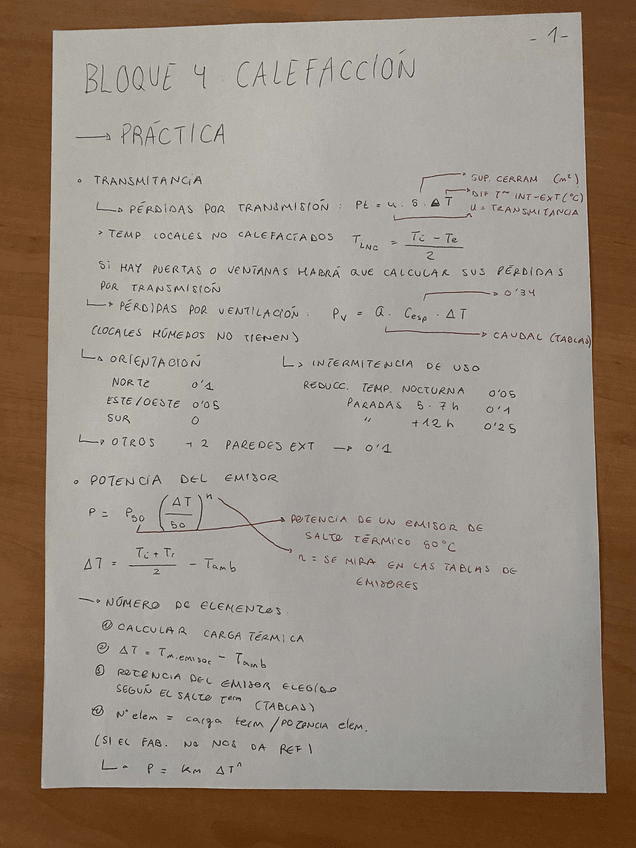 - 1 -
BLOQUE 4 CALEFACCIÓN
→ PRÁCTICA
• TRANSMITANCIA
SUP. CERRAM (m²)
DIF Tª INT-EXT (°C)
↳ PÉRDIDAS POR TRANSMISIÓN: Pt = u. S. Δ T
u = TRANSMITANCIA
> TEMP LOCALES NO CALEFACTADOS T_LNC = (Ti - Te)/2
SI HAY PUERTAS O VENTANAS HABRÁ QUE CALCULAR SUS PÉRDIDAS
POR TRANSMISIÓN
0'34
↳ PÉRDIDAS POR VENTILACIÓN: Pv = Q. Cesp. ΔT
(LOCALES HÚMEDOS NO TIENEN)
CAUDAL (TABLAS)
↳ ORIENTACIÓN
NORTE 0'1
ESTE/OESTE 0'05
SUR 0
↳ INTERMITENCIA DE USO
REDUCC. TEMP. NOCTURNA 0'05
PARADAS 5-7h 0'1
" +12h 0'25
↳ OTROS + 2 PAREDES EXT → 0'1
• POTENCIA DEL EMISOR
P = P50 (ΔT/50)^n
POTENCIA DE UN EMISOR DE
SALTO TÉRMICO 50°C
n = SE MIRA EN LAS TABLAS DE
EMISORES
ΔT = (Ti + Tr)/2 - Tamb
→ NÚMERO DE ELEMENTOS
① CALCULAR CARGA TÉRMICA
② ΔT = Tm.emisor - Tamb
③ POTENCIA DEL EMISOR ELEGIDO
SEGÚN EL SALTO Term (TABLAS)
④ Nº elem = carga term / POTENCIA elem.
(SI EL FAB. NO NOS DA REF)
↳ P = Km ΔT^n